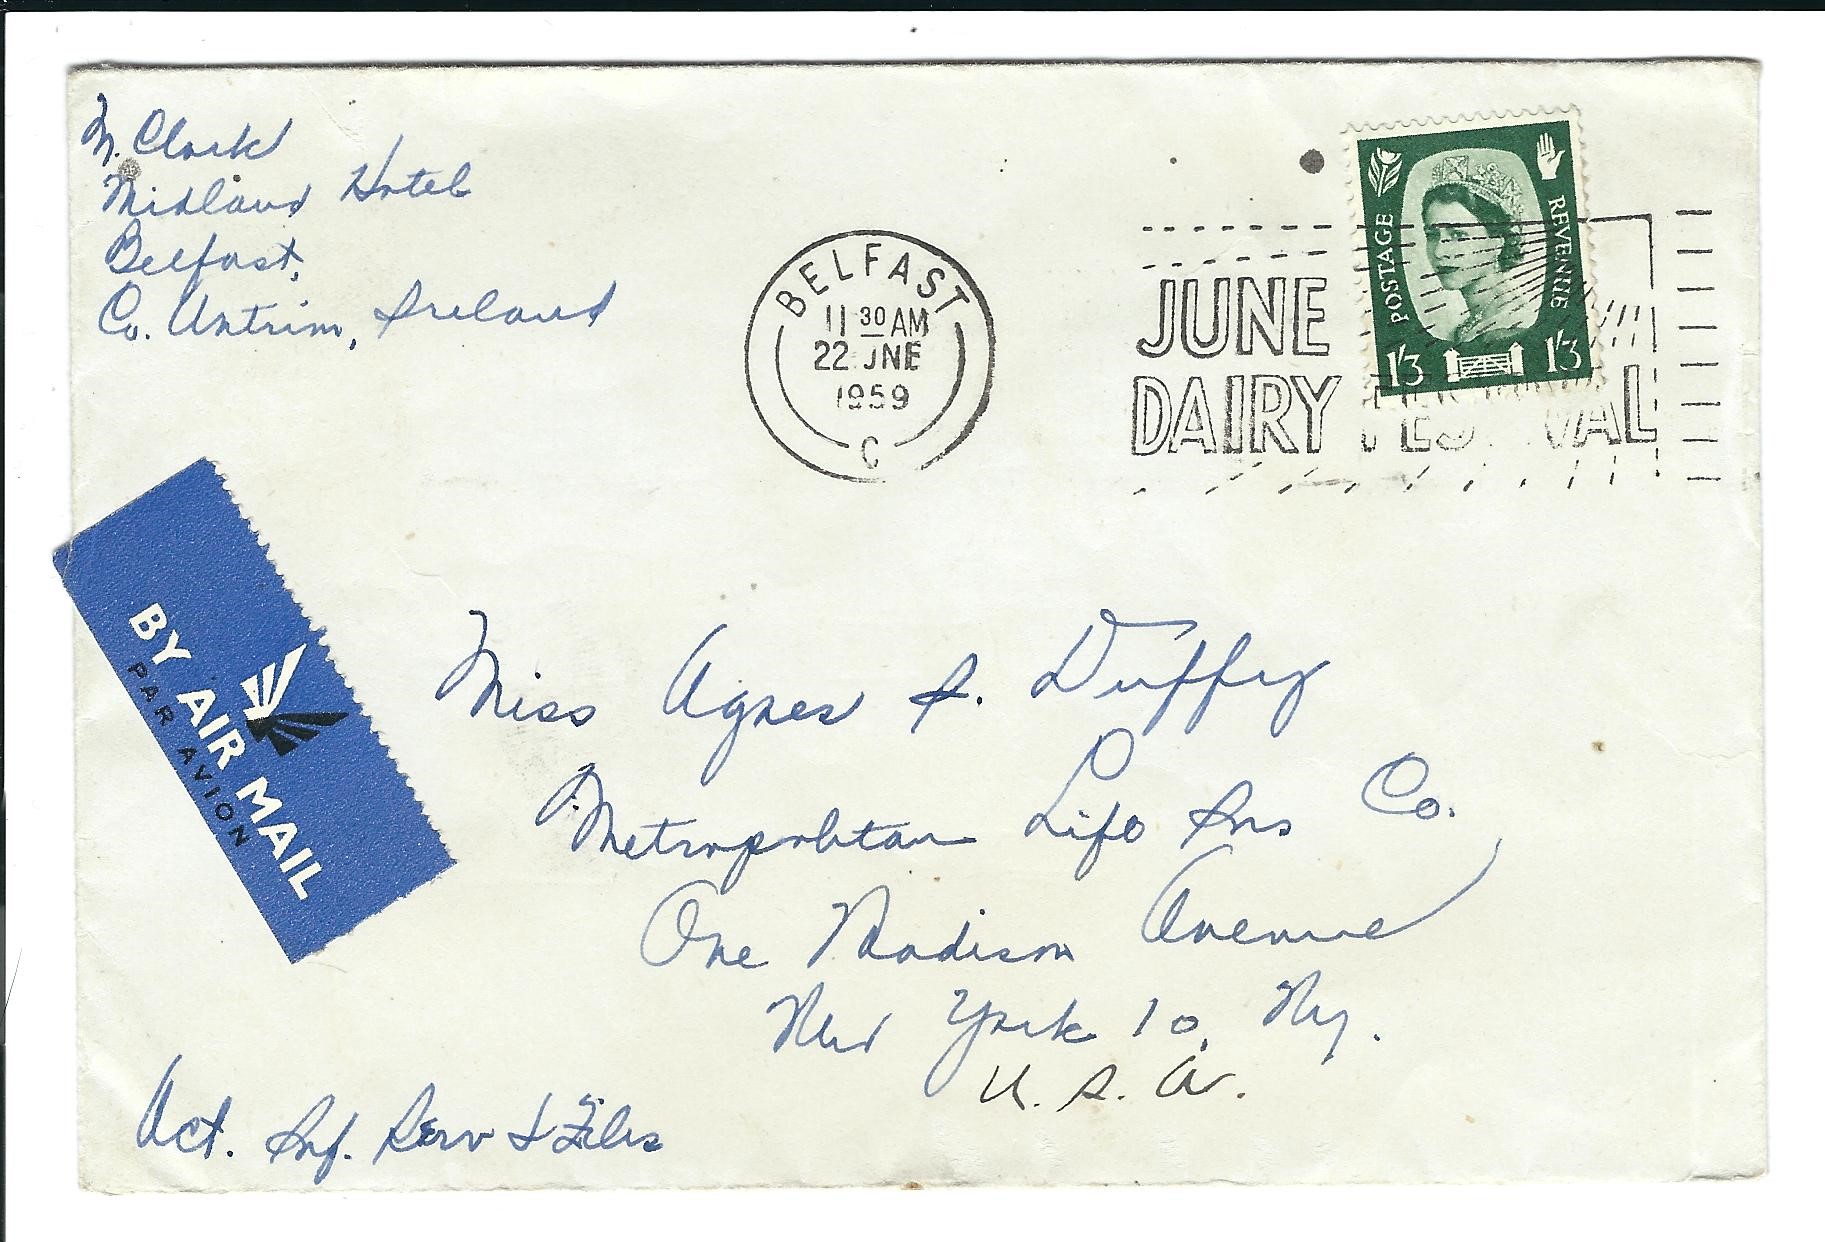 M. Clark
Midland Hotel
Belfast,
Co. Antrim, Ireland
BELFAST
11 30 AM
22 JNE
1959
C
JUNE
DAIRY FESTIVAL
POSTAGE
REVENUE
1/3 1/3
BY AIR MAIL
PAR AVION
Miss Agnes S. Duffy
Metropolitan Life Ins Co.
One Madison Avenue
New York 10, N.Y.
U. S. A.
Act. Inf. Serv & Files